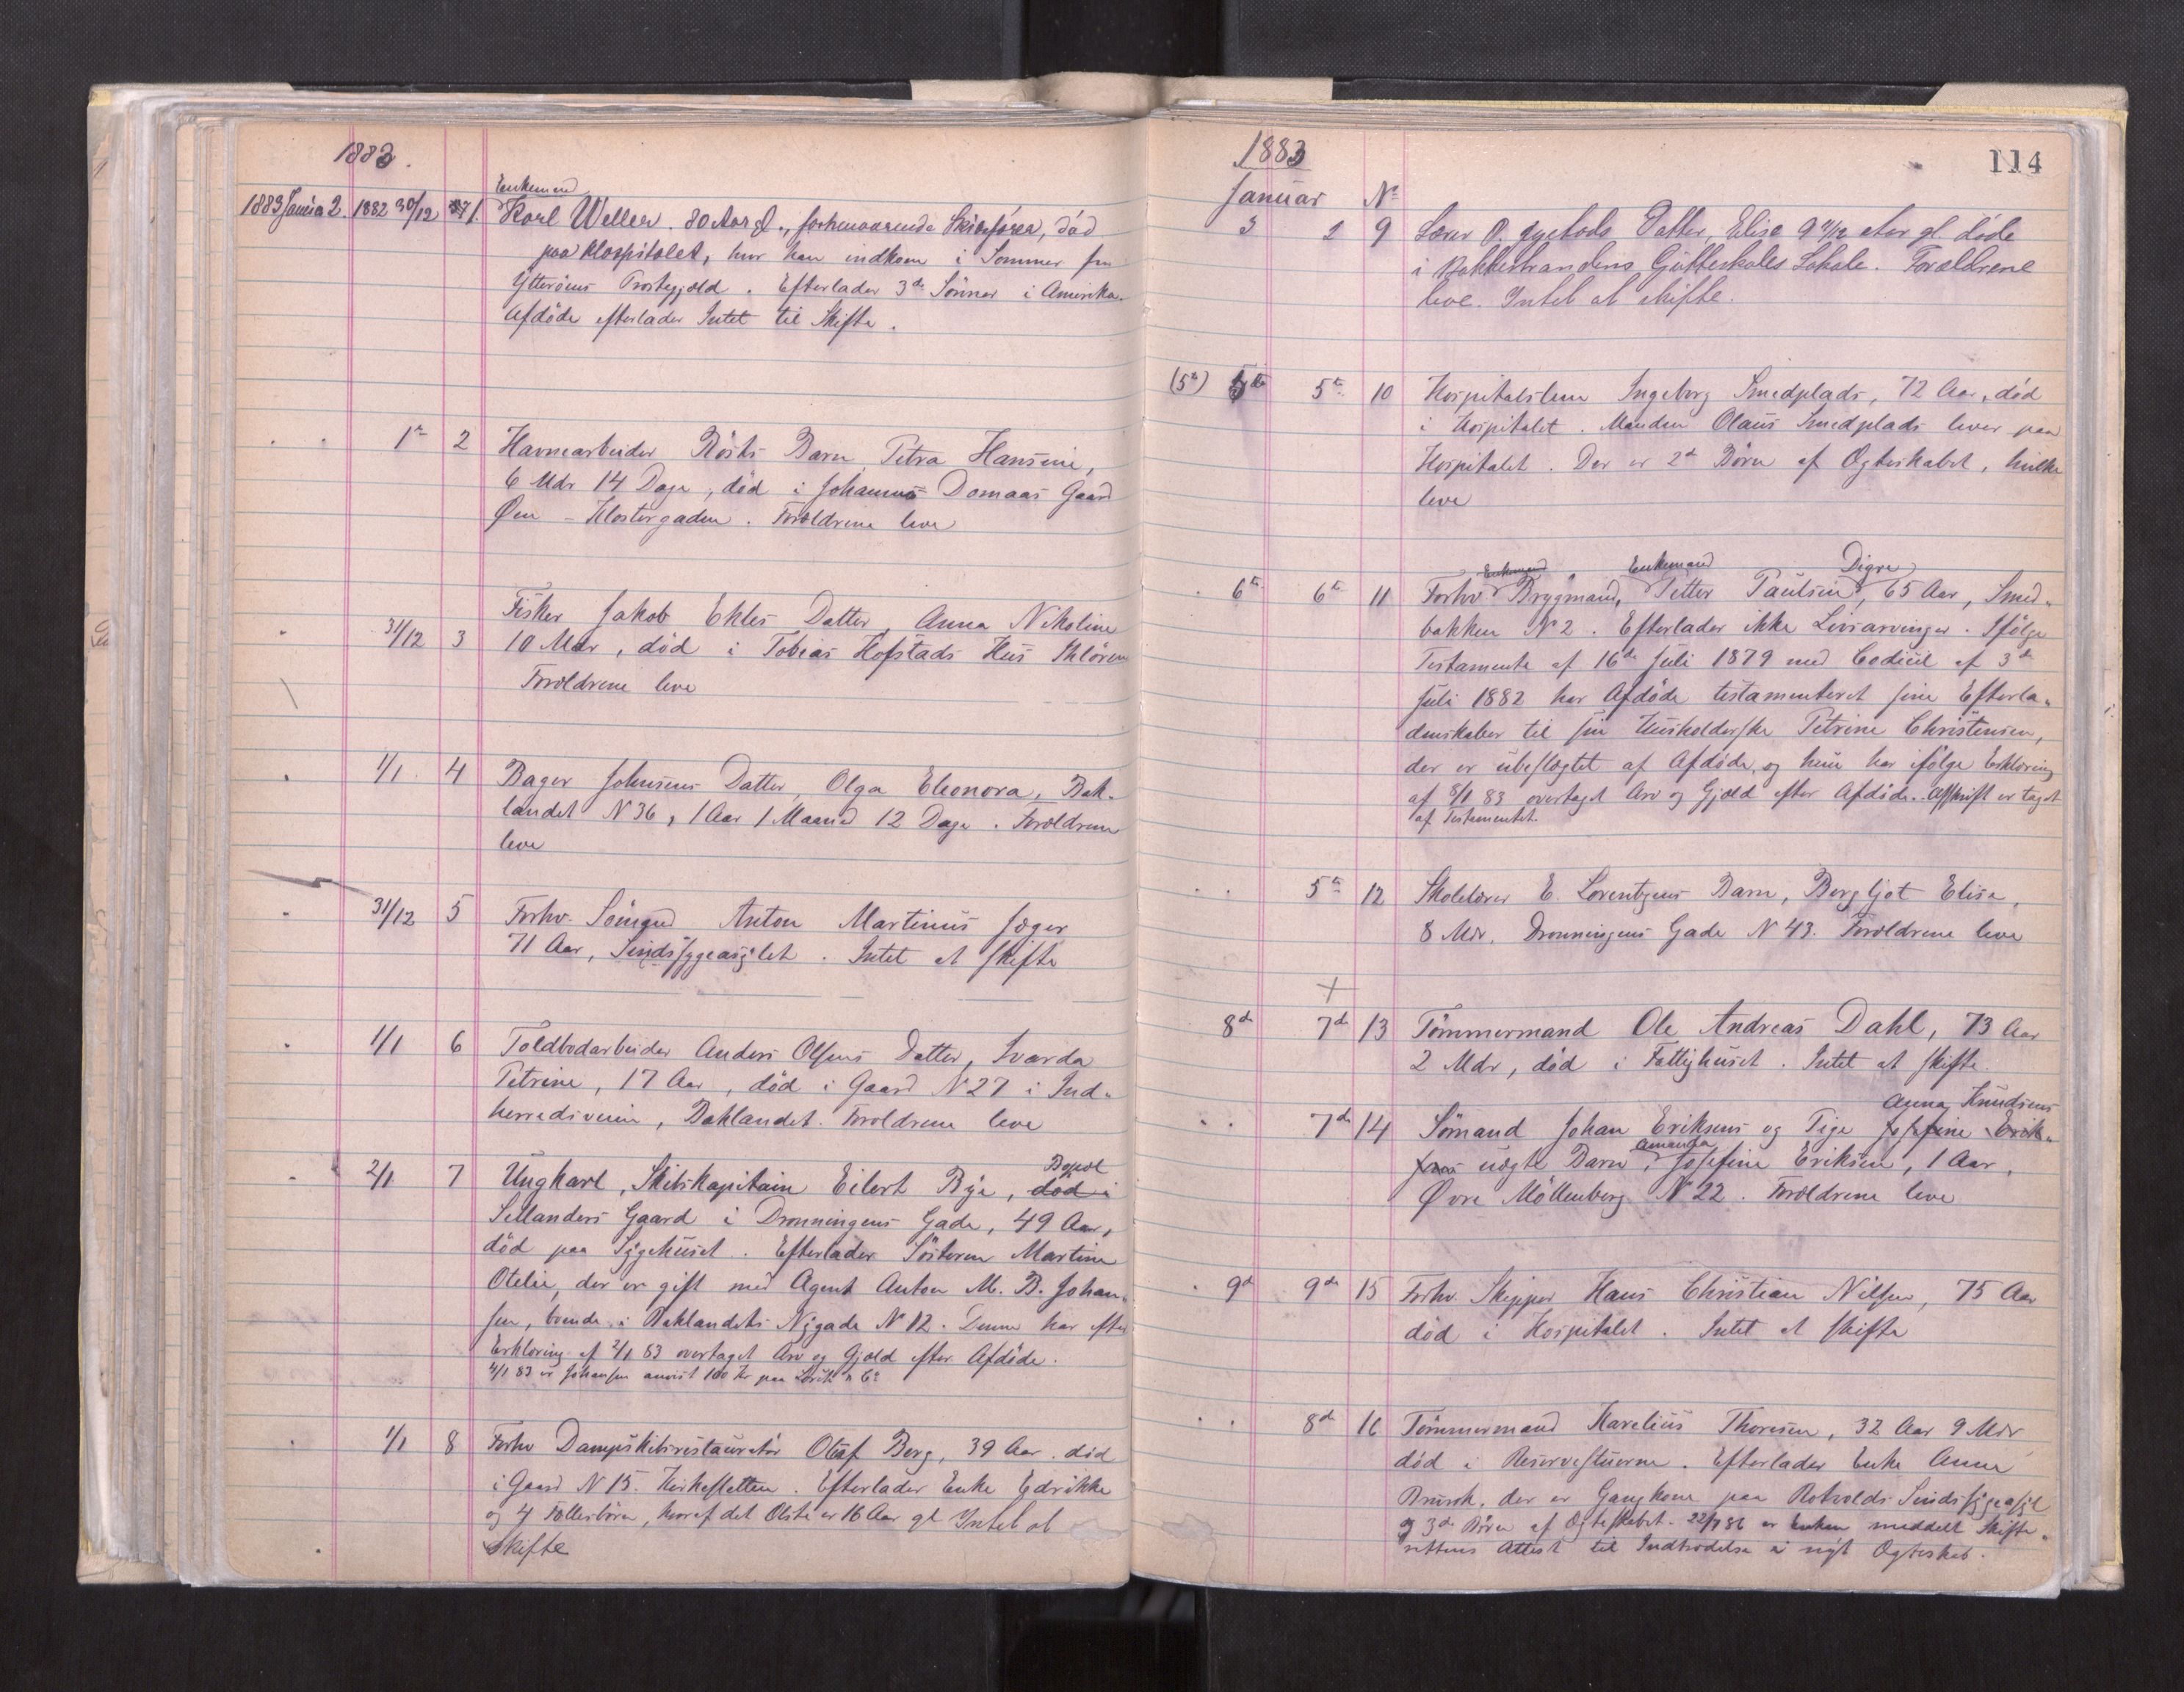 1883.
Enkemand
1883 Januar 2. 1882 30/12 1. Karl Weller. 80 Aar gl., forhenværende Skibsfører, død
paa Hospitalet, hvor han indkom i Sommer fra
Ytterøens Præstegjæld. Efterlader 3de Sønner i Amerika.
Afdøde efterlader Intet til Skifte.
" " 1ste 2 Havnearbeider Røsts Barn Petra Hansine,
6 Mdr 14 Dage, død i Johannes Domaas Gaard
Øen - Klostergaden. Forældrene leve
" 31/12 3 Fisker Jakob Ekles Datter, Anna Nikoline
10 Mdr, død i Tobias Hofstads Hus Ihlören
Forældrene leve
" 1/1 4 Bager Johnsens Datter, Olga Eleonora, Bak-
landet N 36, 1 Aar 1 Maaned 12 Dage. Forældrene
leve
" 31/12 5 Forhv. Sömand Anton Martinus Jæger
71 Aar, Sindssygeasylet. Intet at skifte
" 1/1 6 Toldbodarbeider Anders Olsens Datter, Svarda
Petrine, 17 Aar, død i Gaard N 27 i Ind-
herredsveien, Baklandet. Forældrene leve
" 2/1 7 Ungkarl, Skibskapitain Eilert Bye, Bopæl død i
Sellanders Gaard i Dronningens Gade, 49 Aar,
død paa Sygehuset. Efterlader Søsteren Martine
Otelie, der er gift med Agent Anton M. B. Johan-
sen, boende i Baklandets Nygade N 12. Denne har efter
Erklæring af 2/1 83 overtaget Arv og Gjæld efter Afdøde.
4/1 83 er Johansen anvist 100 Kr paa
" 1/1 8 Forhv Dampskibsrestauratør Olaf Berg, 39 Aar. død
i Gaard N 15. Kirkesletten. Efterlader Enke Edrikke
og 4 Fællesbörn, hvoraf det Ælste er 16 Aar gl Intet at
Skifte
114
1883
Januar No
3 2 9 Lærer O. Datter, Elise 9 Aar gl døde
i Bakkestrandens Gutteskoles Lokale. Forældrene
leve. Intet at skifte.
(5te) 5te 5te 10 Hospitalslem Ingeborg Smedplads, 72 Aar, død
i Hospitalet. Manden Olaus Smedplads lever paa
Hospitalet. Der er 2de Börn af Ægteskabet, hvilke
leve
Enkemand Enkemand Digre
" 6te 6te 11 Forhv Brygmand, Petter Paulsen, 65 Aar, Smed-
bakken N 2. Efterlader ikke Livsarvinger. Ifølge
Testamente af 16de Juli 1879 med Codicil af 3de
Juli 1882 har Afdøde testamenteret sine Efterla-
denskaber til sin Husholderske Petrine Christensen,
der er ubeslægtet af Afdøde, og hun har ifølge Erklæring
af 8/1 83 overtaget Arv og Gjæld efter Afdøde. Afskrift er taget
af Testamentet.
" " 5te 12 Skolelærer E. Lorentzens Barn, Bergljot Elisa,
8 Mdr. Dronningens Gade N 43. Forældrene leve
+
8de 7de 13 Tömmermand Ole Andreas Dahl, 73 Aar
2 Mdr, død i Fattighuset. Intet at skifte.
Anna Knudsens
" " 7de 14 Sömand Johan Eriksens og Pige Josefine Erik-
sens uægte Barn, Amanda Josefine Eriksen, 1 Aar,
Övre Möllenberg N 22. Forældrene leve
" 9de 9de 15 Forhv. Skipper Hans Christian Nilsen, 75 Aar
død i Hospitalet. Intet at skifte
" " 8de 16 Tömmermand Karelius Thoresen, 32 Aar 9 Mdr
død i Reservestuerne. Efterlader Enke Anne
der er Gangkone paa Rotvolds Sindssygeasyl
og 3de Börn af Ægteskabet. 22/7 86 er Enken meddelt Skifte-
rettens Attest til Indtrædelse i nyt Ægteskab.